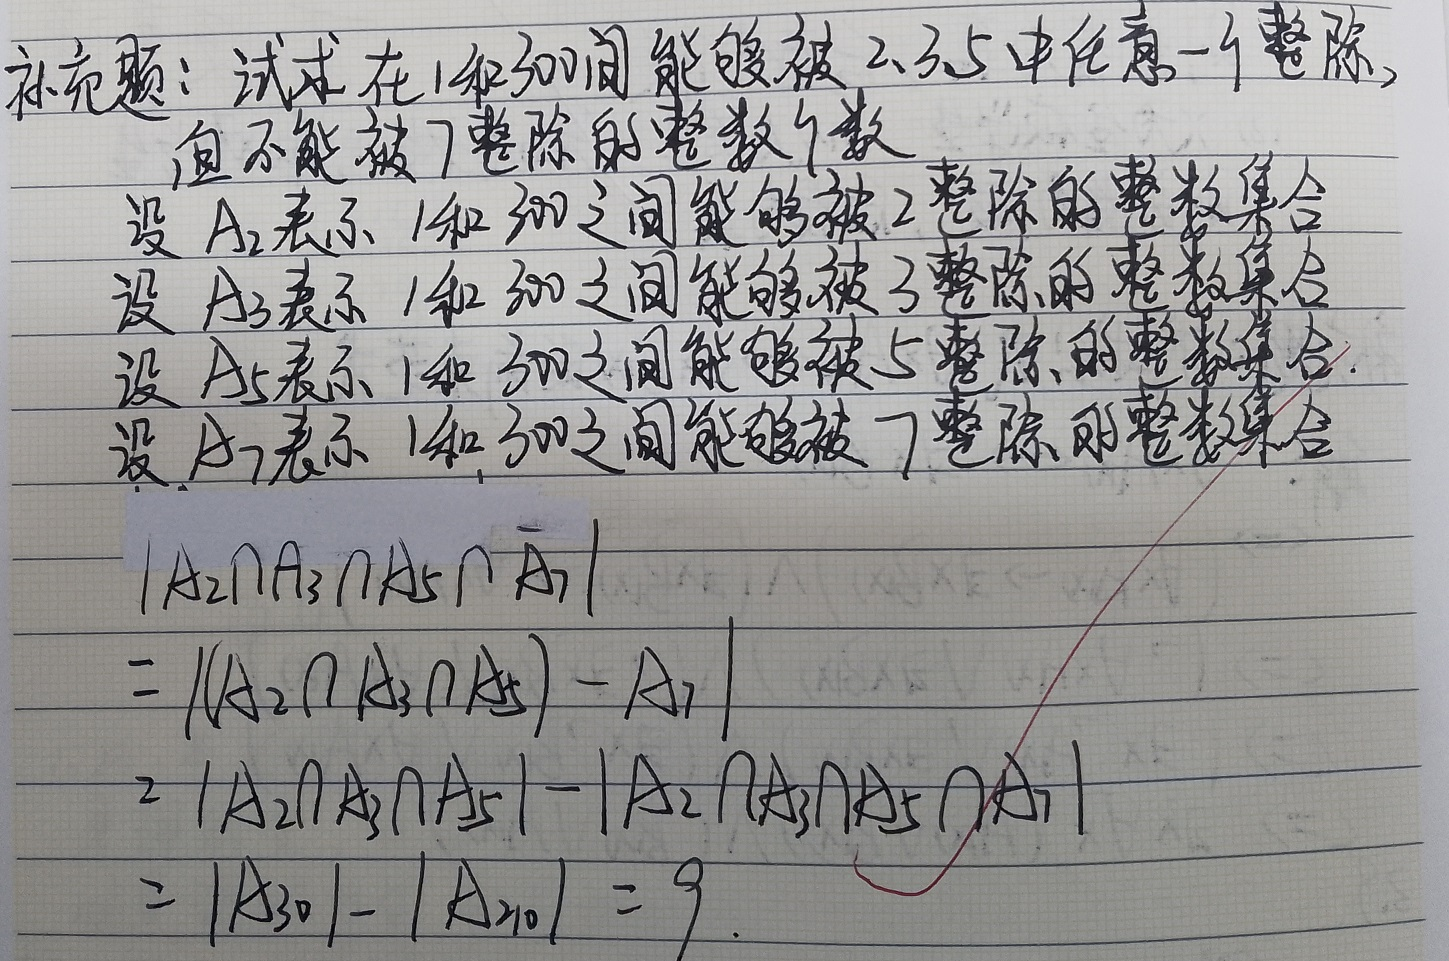 补充题：试求在1和300间能够被2、3、5中任意一个整除，
但不能被7整除的整数个数
设 A₂表示 1和300之间能够被2整除的整数集合
设 A₃表示 1和300之间能够被3整除的整数集合
设 A₅表示 1和300之间能够被5整除的整数集合.
设 A₇表示 1和300之间能够被7整除的整数集合
|A₂∩A₃∩A₅∩A̅₇|
=|(A₂∩A₃∩A₅)-A₇|
=|A₂∩A₃∩A₅|-|A₂∩A₃∩A₅∩A₇|
=|A₃₀|-|A₂₁₀|=9.